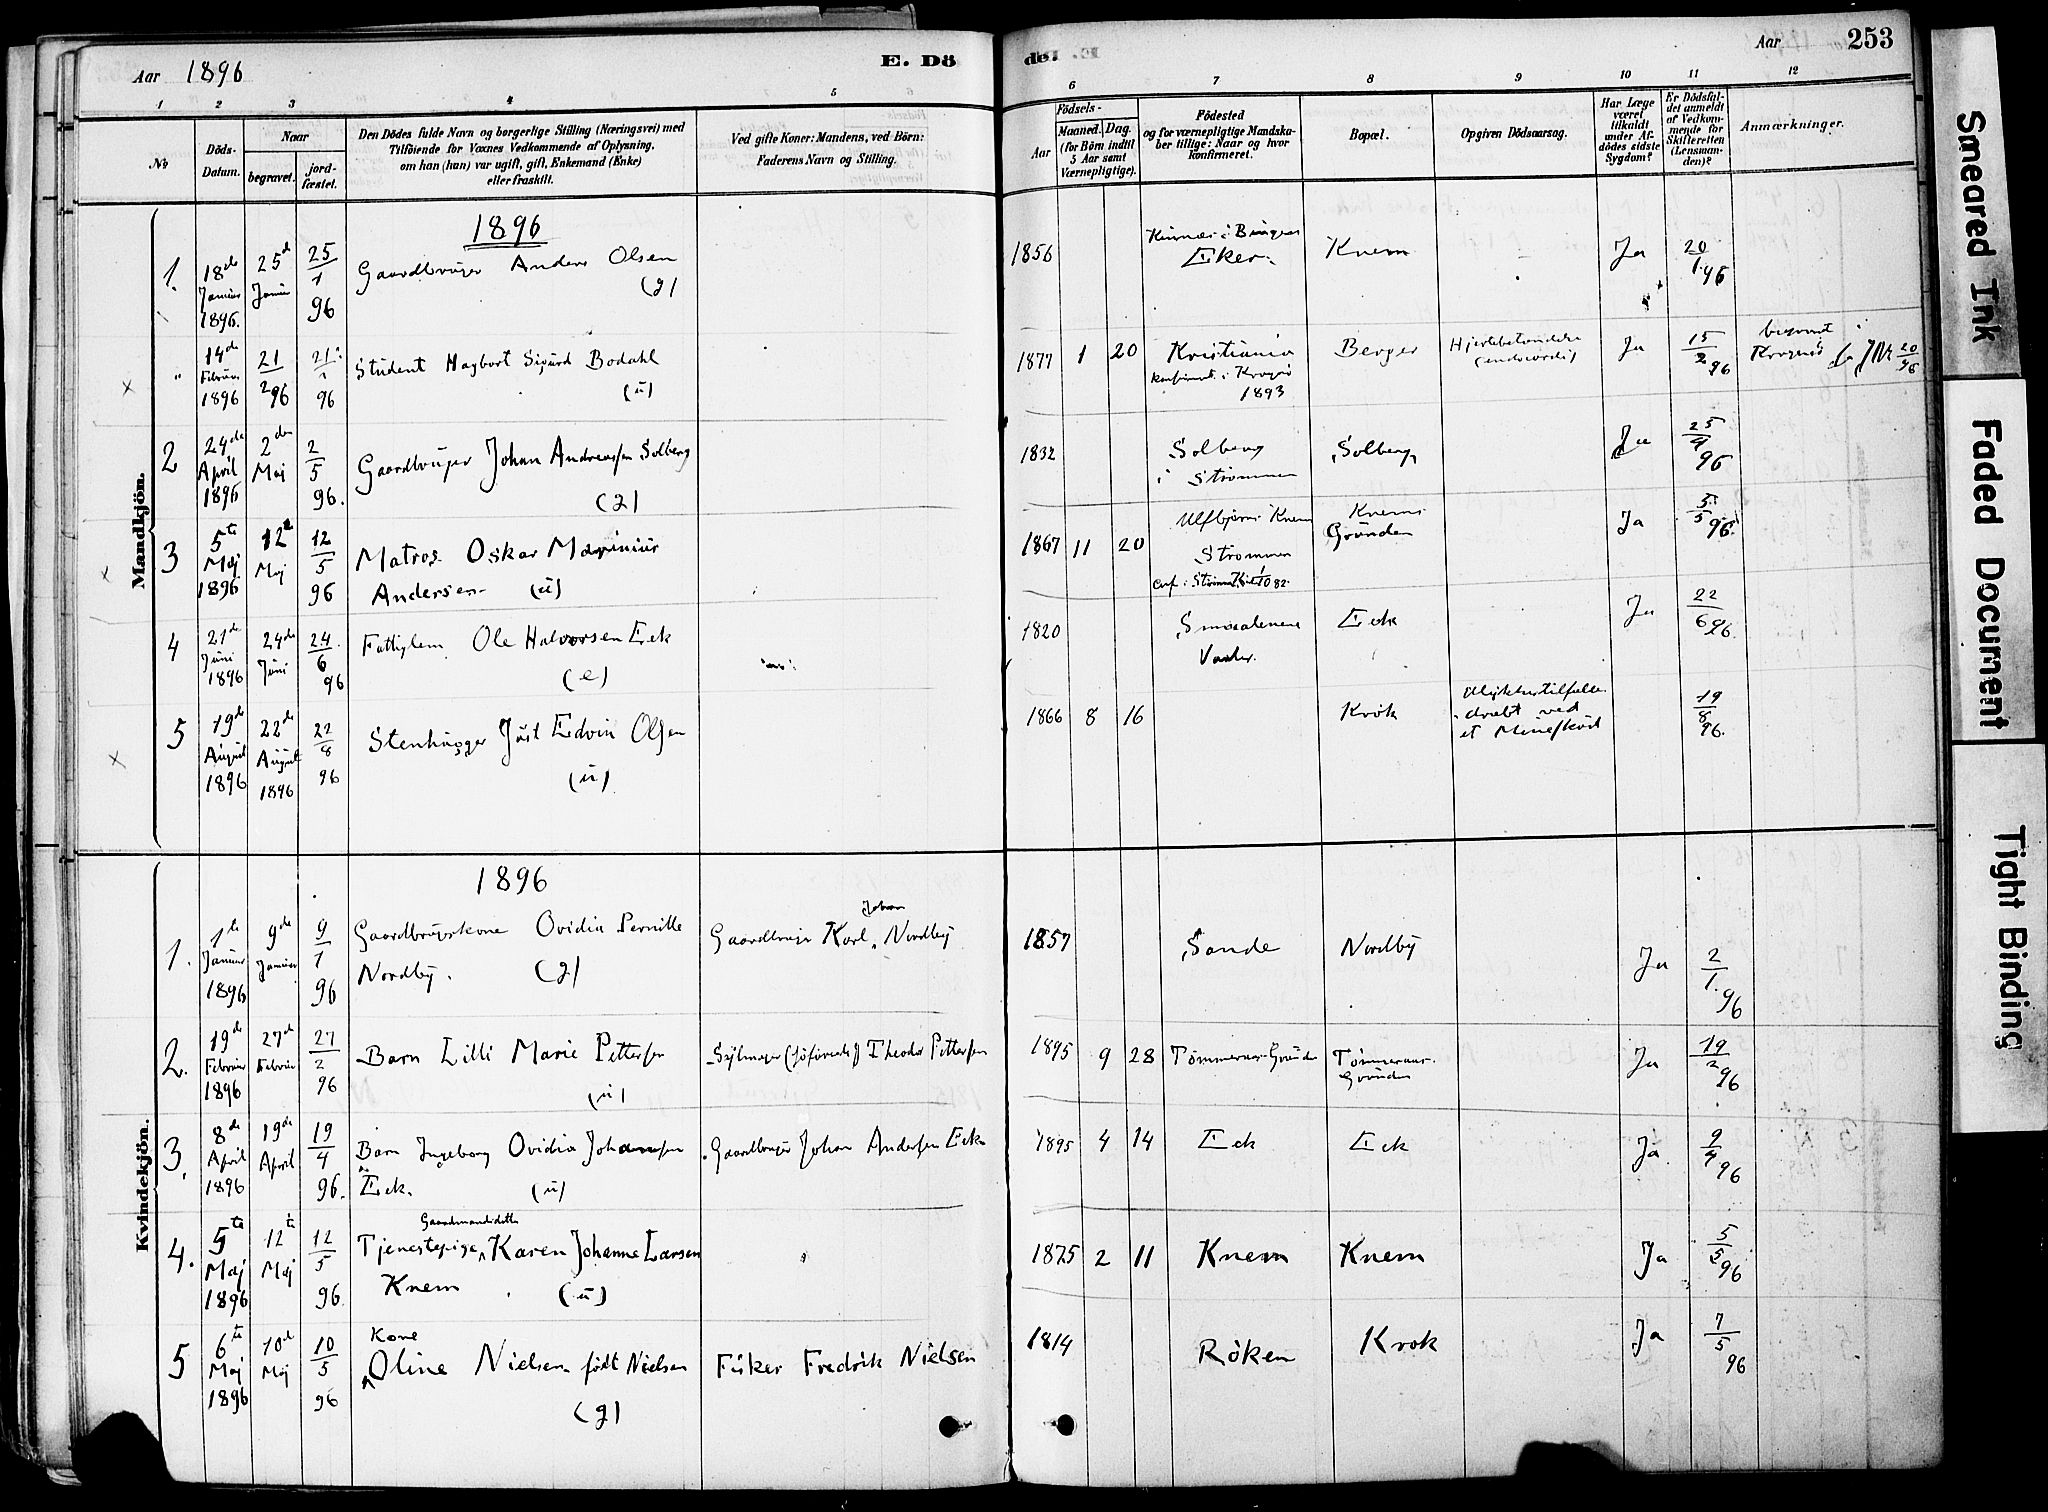 Aar 1896
E. Dö
de.
Aar 253
1 2 3 4 5 6 7 8 9 10 11 12
No
Döds-
Datum.
Naar
begravet.
jord-
fæstet.
Den Dödes fulde Navn og borgerlige Stilling (Næringsvei) med
Tilföiende for Voxnes Vedkommende af Oplysning,
om han (hun) var ugift, gift, Enkemand (Enke)
eller fraskilt.
Ved gifte Koner: Mandens, ved Börn:
Faderens Navn og Stilling.
Födsels-
Aar
Maaned. Dag.
(for Börn indtil
5 Aar samt
Værnepligtige).
Födested
og for værnepligtige Mandska-
ber tillige: Naar og hvor
konfirmeret.
Bopæl.
Opgiven Dödsaarsag.
Har Læge
været
tilkaldt
under Af-
dödes sidste
Sygdom?
Er Dödsfal-
det anmeldt
af Vedkom-
mende for
Skifteretten
(Lensman-
den)?
Anmærkninger.
Mandkjön.
1896
1. 18de Januar 1896. 25d Januar 25/1 96 Gaardbruger Anders Olsen (g) 1856 Eker Knem Ja 20/1 96
" 14de Februar 1896 21/2 96 Student Hagbart Sigurd Bodahl (u) 1877 1 20 Kristiania konfirmet i Kragerö 1893 Berger Ja 15/2 96 begravet Kragerö
2 24de April 1896 2den Maj 2/5 96. Gaardbruger Johan Andreassen Solberg (g) 1832 Solberg i Strömmen Solberg Ja 25/4 96
3 5te Maj 1896 12te Maj 12/5 96 Matros Oskar Marinius Andersen (u) 1867 11 20 Strömmen Knems Grunden Ja 5/5 96.
4 21de Juni 1896 24de Juni 24/6 96 Fattiglem Ole Halvorsen Eek (e) 1820 Smaalenene Vaaler. Eek Ja 22/6 96.
5 19de August 1896 22de August 1896 22/8 96 Stenhugger Just Edvin Olsen (u) 1866 8 16 Krok Ulykkestilfælde dræbt ved et Mineskud 19/8 96.
Kvindekjön.
1896
1. 1te Januar 1896 9de Januar 9/1 96 Gaardbrugskone Ovidia Pernille Nordby. (g) Gaardbruger Karl Johan Nordby 1857 Sande Nordby Ja 2/1 96
2. 19de Februar 1896 27de Februar 27/2 96 Barn Lilli Marie Pettersen (u) Theodor Pettersen 1895 9 28 Tömmeraas-Grunden Tömmeraas-Grunden Ja 19/2 96
3. 8de April 1896 19de April 19/4 96. Barn Ingeborg Ovidia Johansen Eek. (u) Gaardbruger Johan Andersen Eek 1895 4 14 Eek Eek Ja. 9/4 96
4. 5te Maj 1896 12te Maj 12/5 96. Tjenestepige Gaardmandsdatter Karen Johanne Larsen Knem (u) 1875 2 11 Knem Knem Ja 5/5 96
5 6te Maj 1896 10d Maj 10/5 96 Kone Oline Nielsen född Nielsen (g) Fisker Fredrik Nielsen 1814 Röken Krok Ja 7/5 96
Smeared Ink
Faded Document
Tight Binding